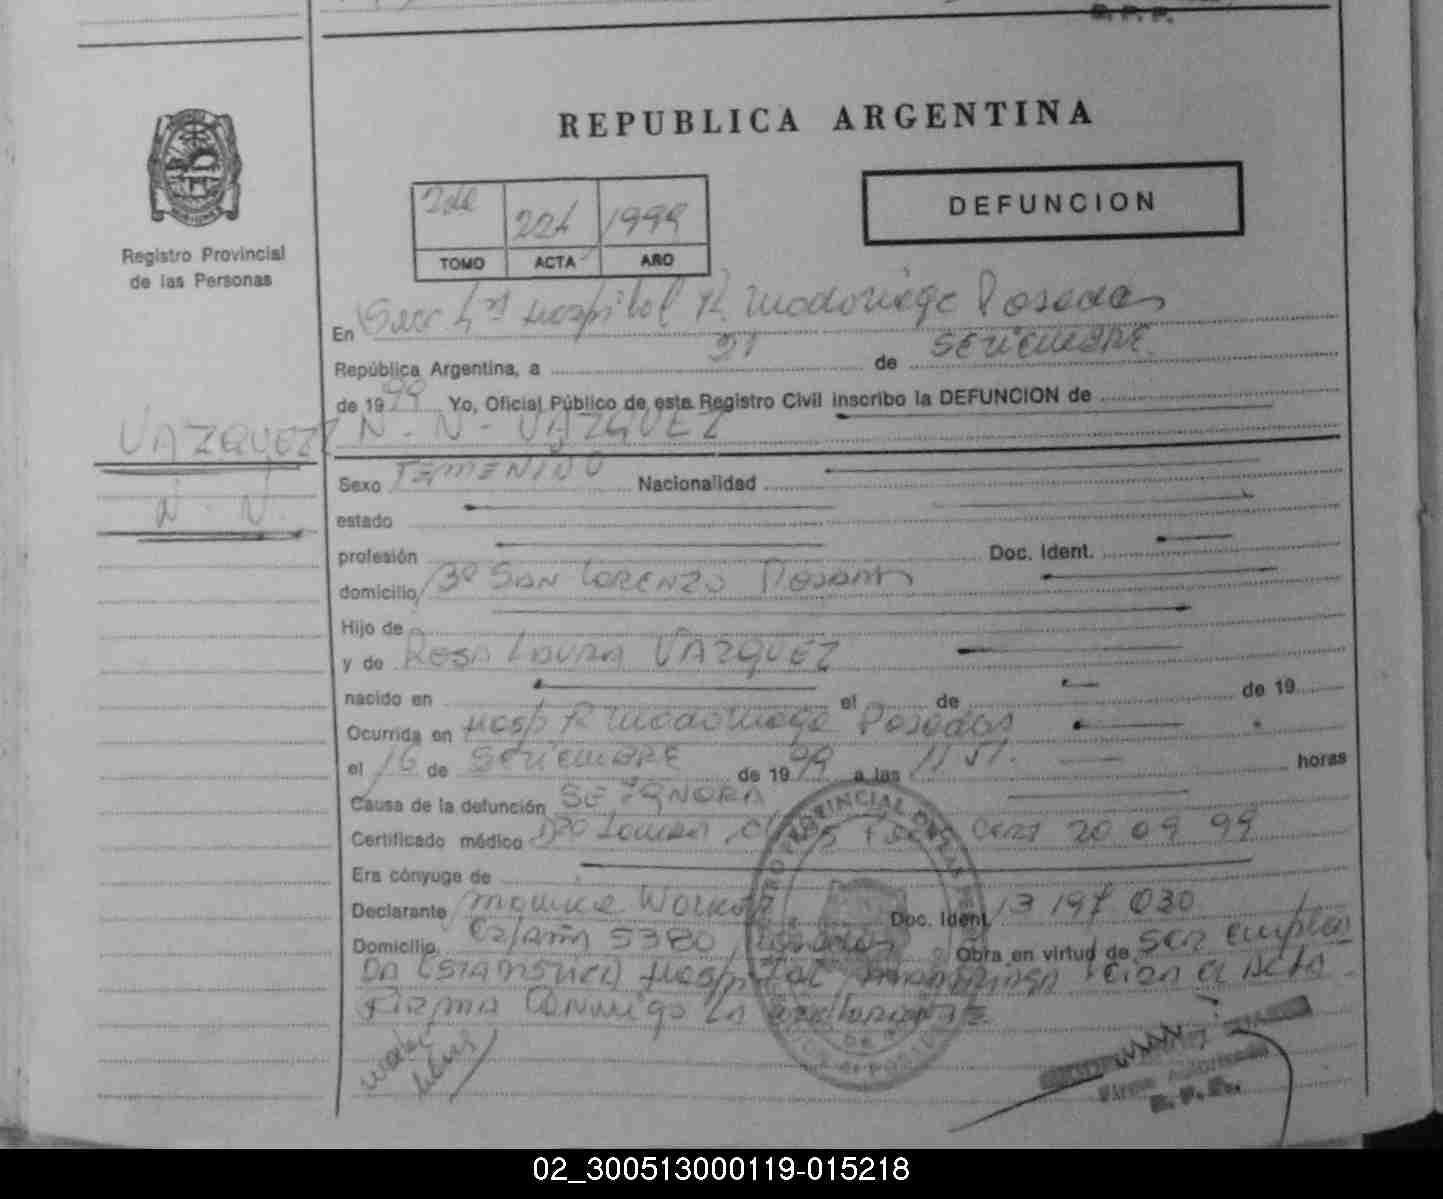 REPUBLICA ARGENTINA
DEFUNCION
Registro Provincial
de las Personas
2de 224 1999
TOMO ACTA AÑO
En Secc 4ta Hospital R Madariaga Posadas
República Argentina, a 21 de SETIEMBRE
de 1999 Yo, Oficial Público de este Registro Civil inscribo la DEFUNCION de
N. N. VAZQUEZ
VAZQUEZ
N. N.
Sexo FEMENINO Nacionalidad
estado
profesión Doc. Ident.
domicilio Bº SAN LORENZO Posadas
Hijo de
y de ROSA LAURA VAZQUEZ
nacido en el de de 19
Ocurrida en Hosp R Madariaga Posadas
el 16 de SETIEMBRE de 1999 a las 11 51 horas
Causa de la defunción SE IGNORA
Certificado médico 20 09 99
Era cónyuge de
Declarante Doc. Ident. 13 197 030
Domicilio España 5380 Posadas Obra en virtud de SER emplea
DA ESTADISTICA Hospital el Acta
FIRMA Conmigo LA
Firma Autorizada
R. P. P.
02_300513000119-015218